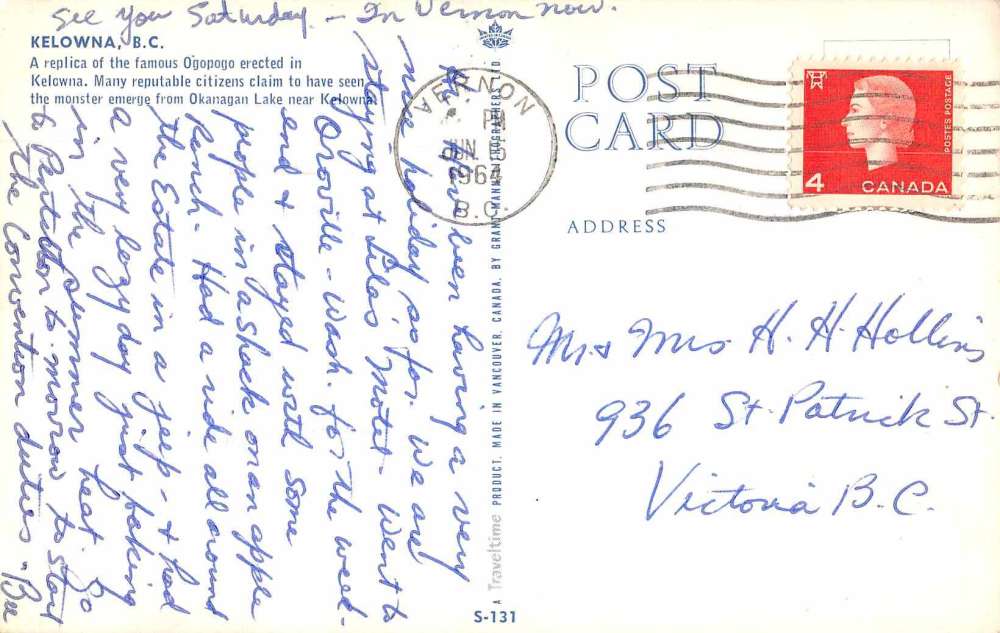 See you Saturday. - In Vernon now.
KELOWNA, B.C.
A replica of the famous Ogopogo erected in
Kelowna. Many reputable citizens claim to have seen
the monster emerge from Okanagan Lake near Kelowna.
have been having a very
nice holiday so far. We are
staying at Silas Motel - Went to
Oroville - Wash. for the week-
end & stayed with some
people in a shack on an apple
Ranch - Had a ride all around
the Estate in a jeep - & had
a very lazy day just baking
in the summer heat. Go
to Penticton to-morrow to start
the Convention duties - Bee
VERNON
PM
JUN
1964
B.C.
POST
CARD
ADDRESS
POSTES POSTAGE
4 CANADA
Mr & Mrs H. H. Hollins
936 St. Patrick St.
Victoria B.C.
A Traveltime PRODUCT, MADE IN VANCOUVER, CANADA, BY GRANT-MANN LITHOGRAPHERS LTD.
S-131